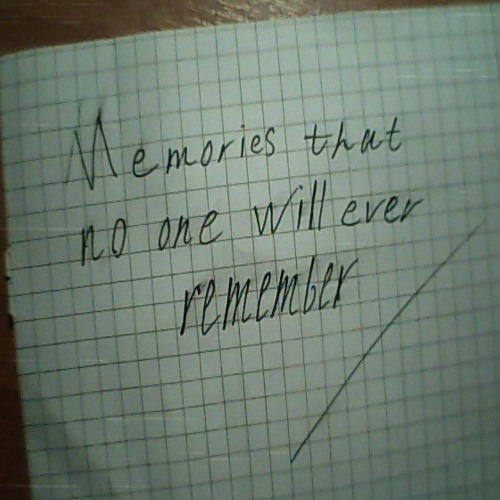 Memories that
no one will ever
remember